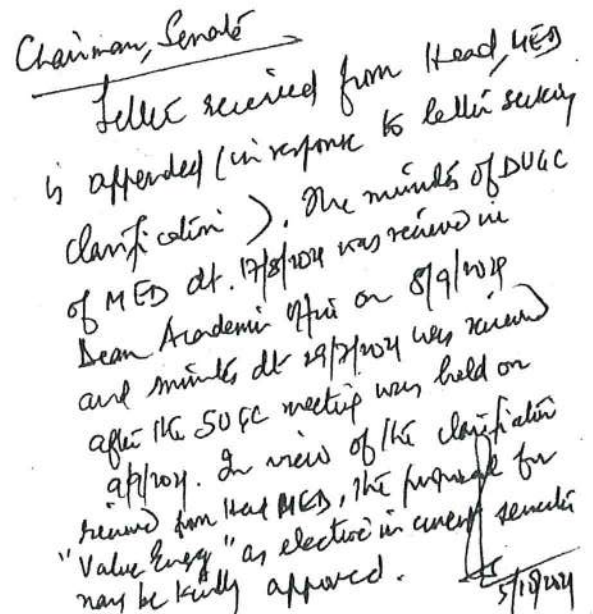 Chairman, Senate
Letter received from Head, MED
is appended (in response to letter seeking
clarification). The minutes of DUGC
of MED dt. 17/8/2021 was received in
Dean Academic Office on 8/9/2021
and minutes dt 29/7/2021 was received
after the SUGC meeting was held on
9/9/2021. In view of the clarification
received from Head MED, the proposal for
"Value Engg" as elective in current semester
may be kindly approved.
5/10/2021